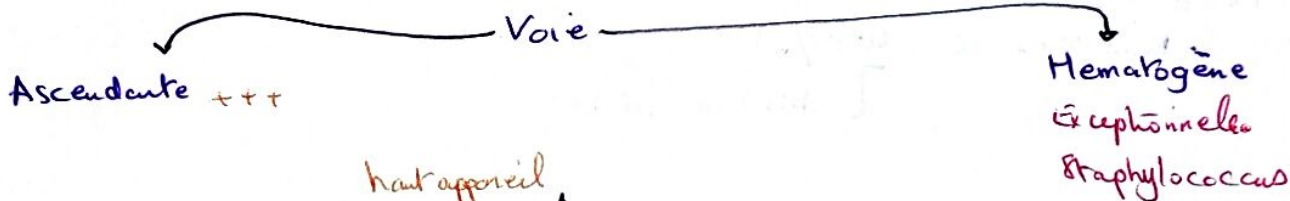 Voie
Ascendante +++
Hematogène
Exceptionnelle
Staphylococcus
haut appareil